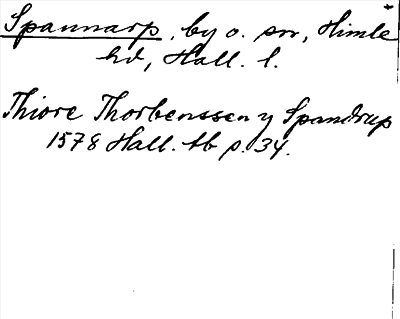 Spannarp, by o. sn, Himle
hd, Hall. l.
Thiore Thorbenssen y Spandrup
1578 Hall. tb p. 34.